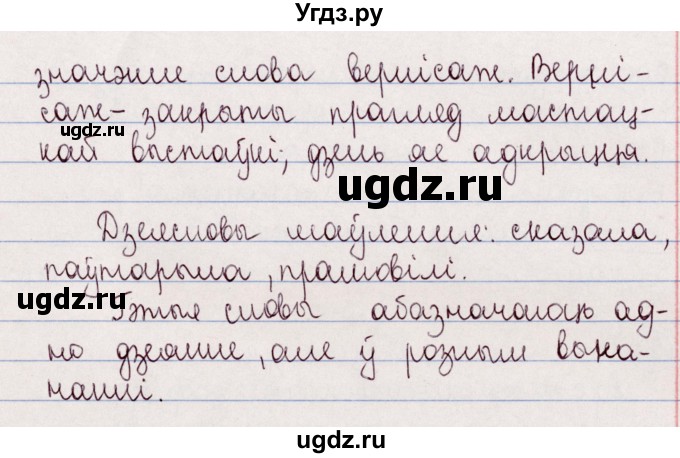 Угдз.ру
значэнне слова вернісаж. Верні-
саж- закрыты прагляд мастац-
кай выстаўкі, дзень яе адкрыцця.
ugdz.ru
ugdz.ru
Дзеясловы маўлення: сказала,
паўтарыла, прамовілі.
ugdz.ru
Гэтыя словы абазначаюць ад-
но дзеянне, але ў розным выка-
нанні.
ugdz.ru